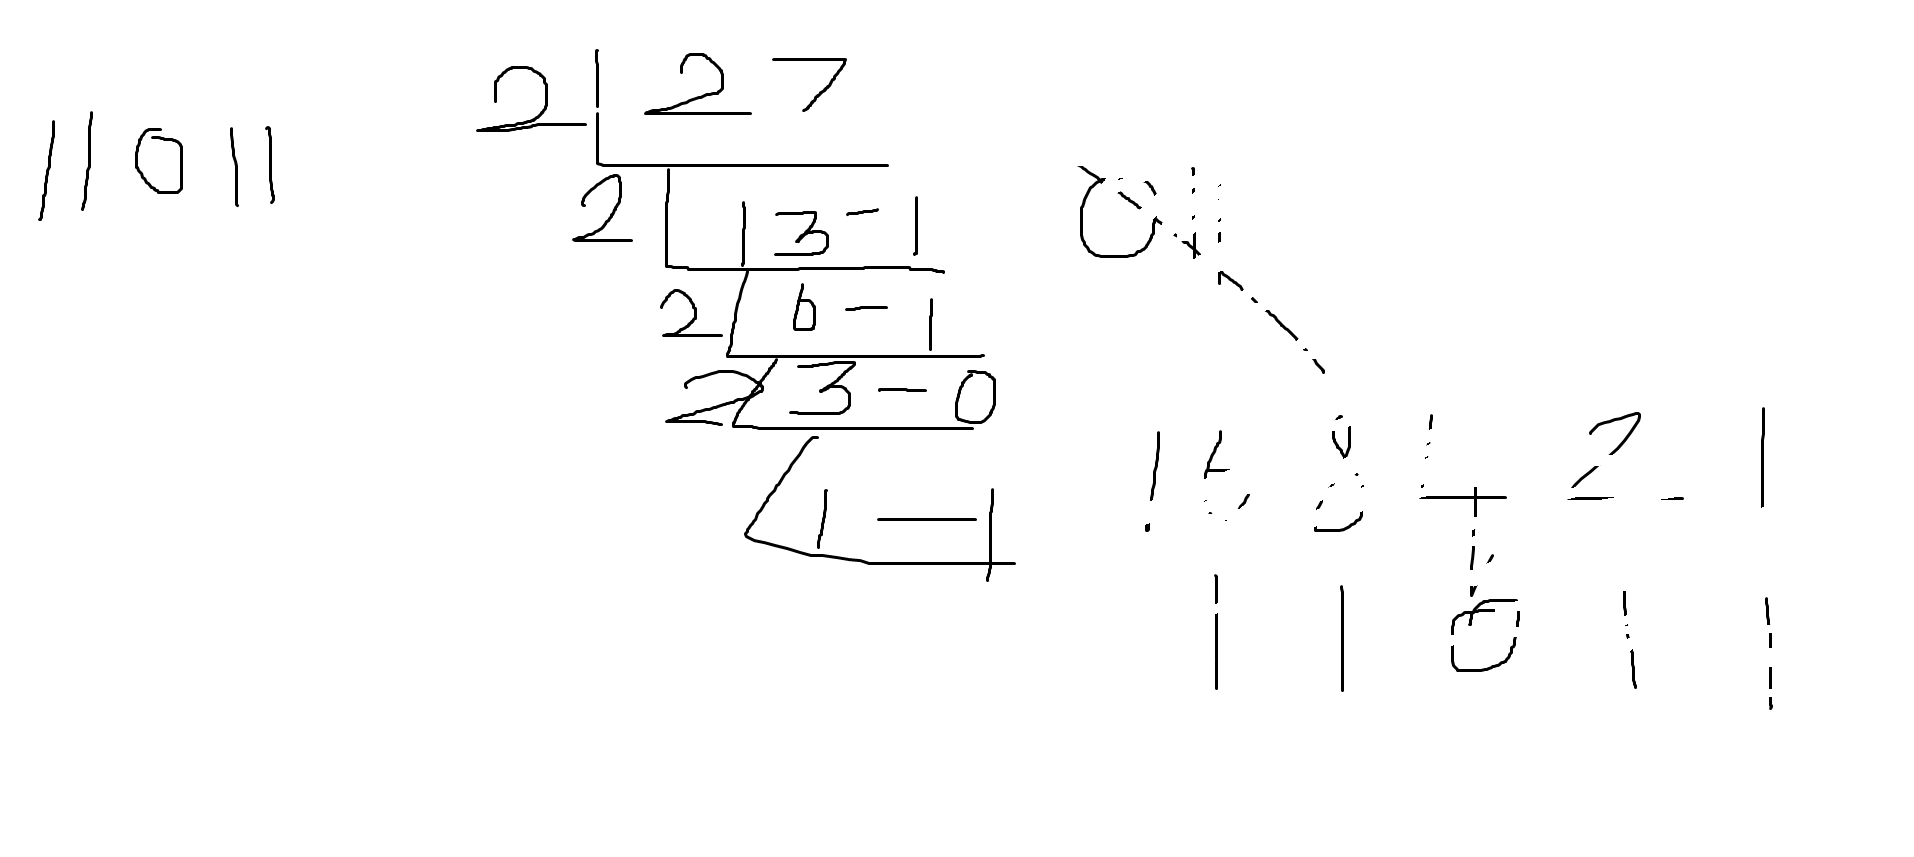 11011
2 27
2 13-1
2 6-1
2 3-0
1-1
011
16 8 4 2 1
1 1 0 1 1